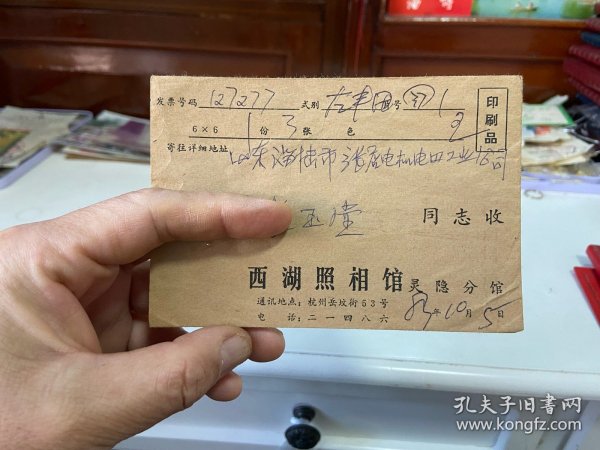 发票号码 127277 式别 号 1
印刷品
6×6 1 份 3 张 色 2
寄往详细地址 山东淄博市张店电机电田工业公司
玉堂 同志收
西湖照相馆灵隐分馆
通讯地点：杭州岳坟街63号
电话：二一四八六
83年10月5日
孔夫子旧书网
www.kongfz.com